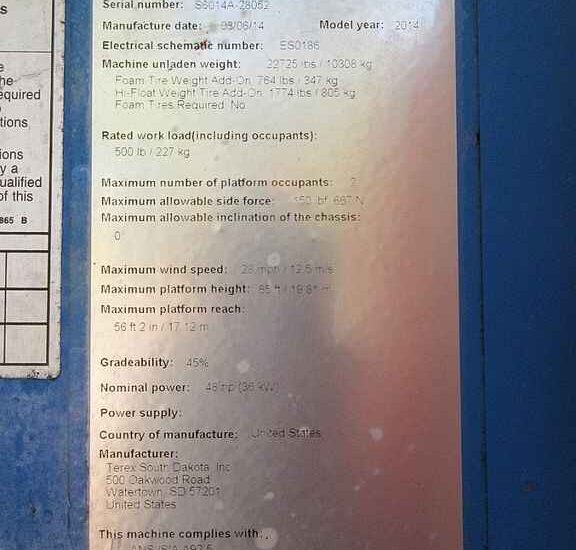 s
e
he
equired
tions
ions
y a
ualified
of this
865 B
Serial number: S6014A-28052
Manufacture date: 08/06/14 Model year: 2014
Electrical schematic number: ES0186
Machine unladen weight: 22725 lbs / 10308 kg
Foam Tire Weight Add-On 764 lbs / 347 kg
Hi-Float Weight Tire Add-On 1774 lbs / 805 kg
Foam Tires Required No
Rated work load(including occupants):
500 lb / 227 kg
Maximum number of platform occupants: 2
Maximum allowable side force: 150 lbf 667 N
Maximum allowable inclination of the chassis:
0°
Maximum wind speed: 28 mph / 12.5 m/s
Maximum platform height: 65 ft / 19.81 m
Maximum platform reach:
56 ft 2 in / 17.12 m
Gradeability: 45%
Nominal power: 48 hp (36 kW)
Power supply:
Country of manufacture: United States
Manufacturer:
Terex South Dakota, Inc
500 Oakwood Road
Watertown, SD 57201
United States
This machine complies with: